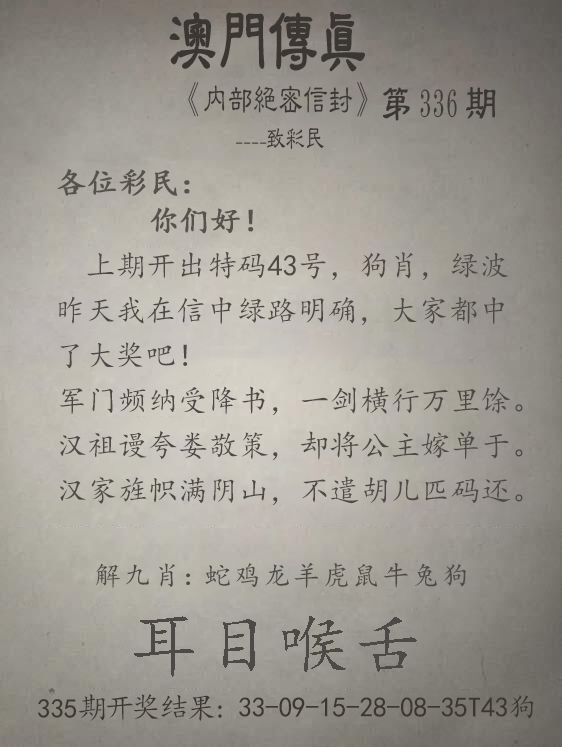 澳門傳眞
《内部絕密信封》第336期
----致彩民
各位彩民：
你们好！
上期开出特码43号，狗肖，绿波
昨天我在信中绿路明确，大家都中
了大奖吧！
军门频纳受降书，一剑横行万里馀。
汉祖谩夸娄敬策，却将公主嫁单于。
汉家旌帜满阴山，不遣胡儿匹码还。
解九肖：蛇鸡龙羊虎鼠牛兔狗
耳目喉舌
335期开奖结果：33-09-15-28-08-35T43狗